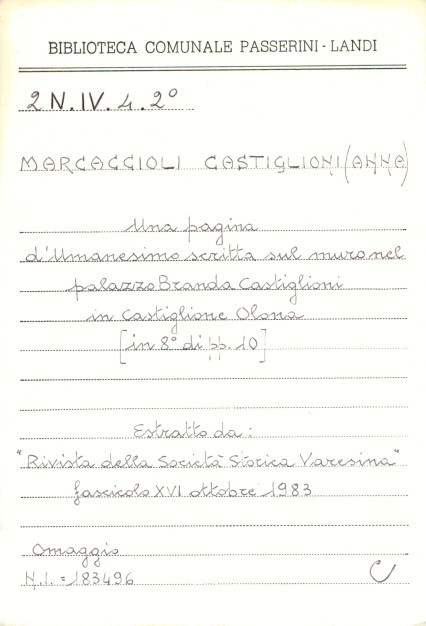 BIBLIOTECA COMUNALE PASSERINI - LANDI
2 N.IV.4.2°
MARCACCIOLI CASTIGLIONI (ANNA)
Una pagina
d'Umanesimo scritta sul muro nel
palazzo Branda Castiglioni
in Castiglione Olona
[in 8° di pp. 10]
Estratto da:
"Rivista della Società Storica Varesina"
fascicolo XVI ottobre 1983
Omaggio
N.I. = 183496
C